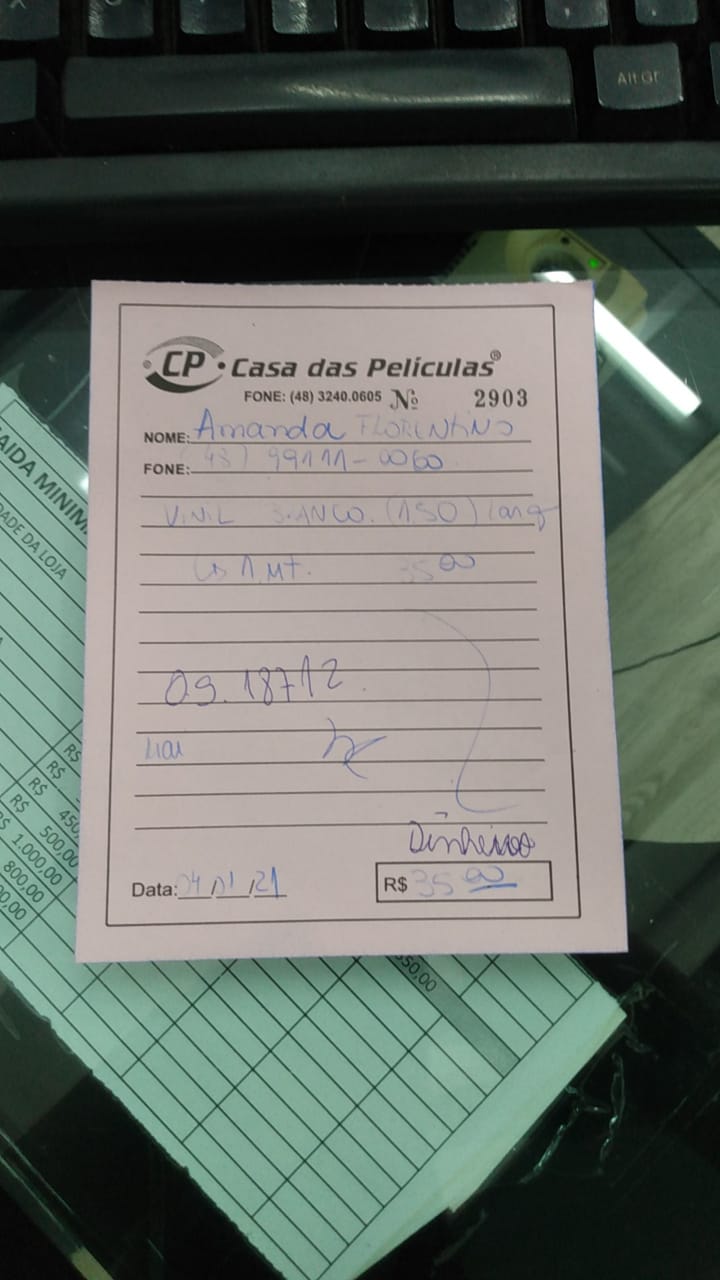 Alt Gr
CP Casa das Películas®
FONE: (48) 3240.0605 Nº 2903
NOME: Amanda FLORENTINO
FONE: (48) 99111-0060
VINIL BRANCO. (1,50) Larg
1 MT. 35 00
OS. 18712
Dinheiro
Data: 04/01/21
R$ 35 00
SAIDA MINIM
DADE DA LOJA
R$
R$
R$ 450
R$ 500,00
1.000,00
800,00
350,00